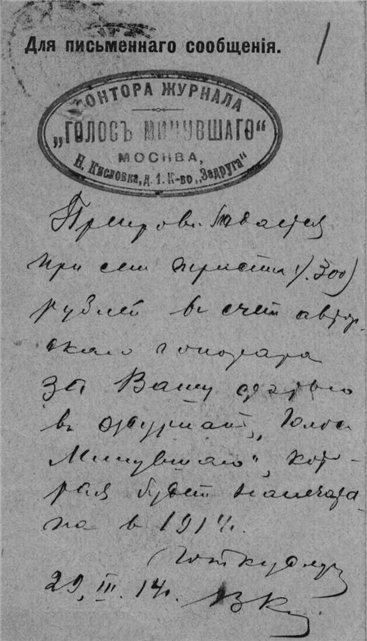 Для письменнаго сообщенія.
1
КОНТОРА ЖУРНАЛА
„ГОЛОСЪ МИНУВШАГО“
МОСКВА,
Н. Кисловка, д. 1. К-во „Задруга“
при сем триста (300)
рублей в счет автор-
скаго гонорара
за Вашу статью
в журнал „Голос
Минувшаго“, кото-
рая будет напечата-
на в 1914г.
29. III. 14г.